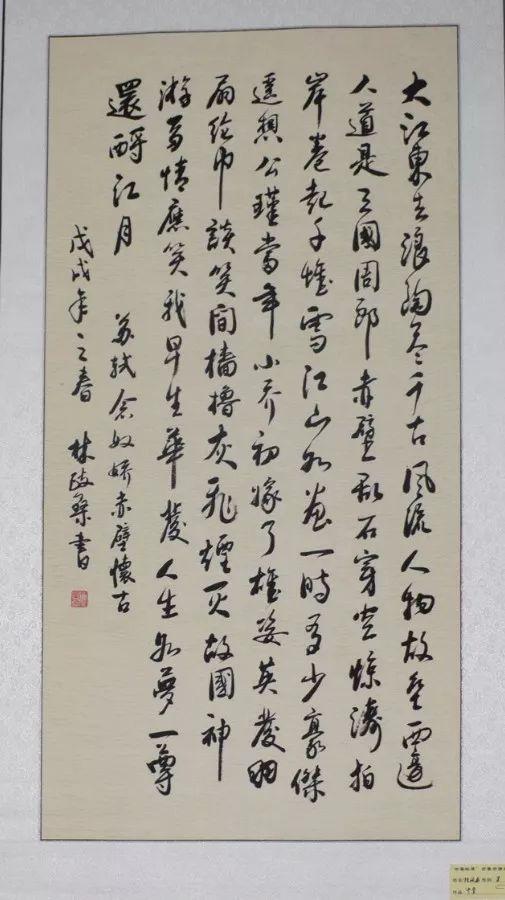 大江東去浪淘尽千古風流人物故壘西邊
人道是三國周郎赤壁乱石穿空惊濤拍
岸卷起千堆雪江山如畫一時多少豪傑
遙想公瑾當年小乔初嫁了雄姿英發羽
扇綸巾談笑間檣櫓灰飛煙灭故國神
游多情應笑我早生華髮人生如夢一尊
還酹江月 苏軾念奴嬌赤壁懷古
戊戌年之春 林政書